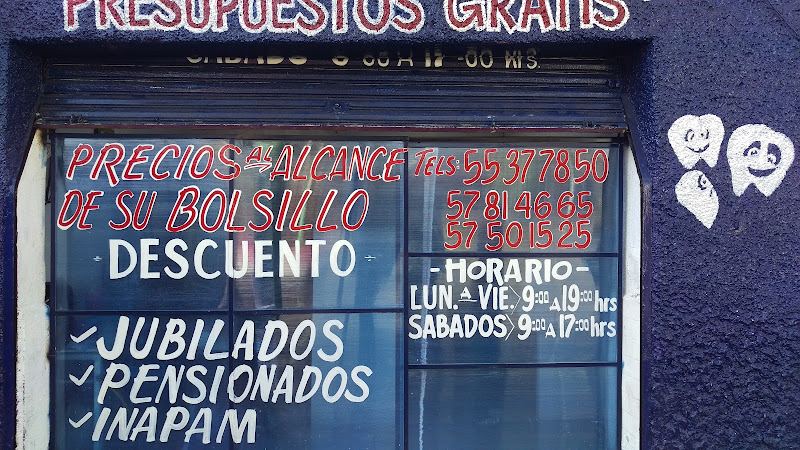 PRESUPUESTOS GRATIS
SABADO 9 00 A 17 -00 Hrs.
PRECIOS AL ALCANCE
DE SU BOLSILLO
- DESCUENTO -
✓JUBILADOS
✓PENSIONADOS
✓INAPAM
TELS: 55377850
57814665
57501525
-HORARIO-
LUN. A VIE.> 9:00 A 19:00 hrs
SABADOS> 9:00 A 17:00 hrs